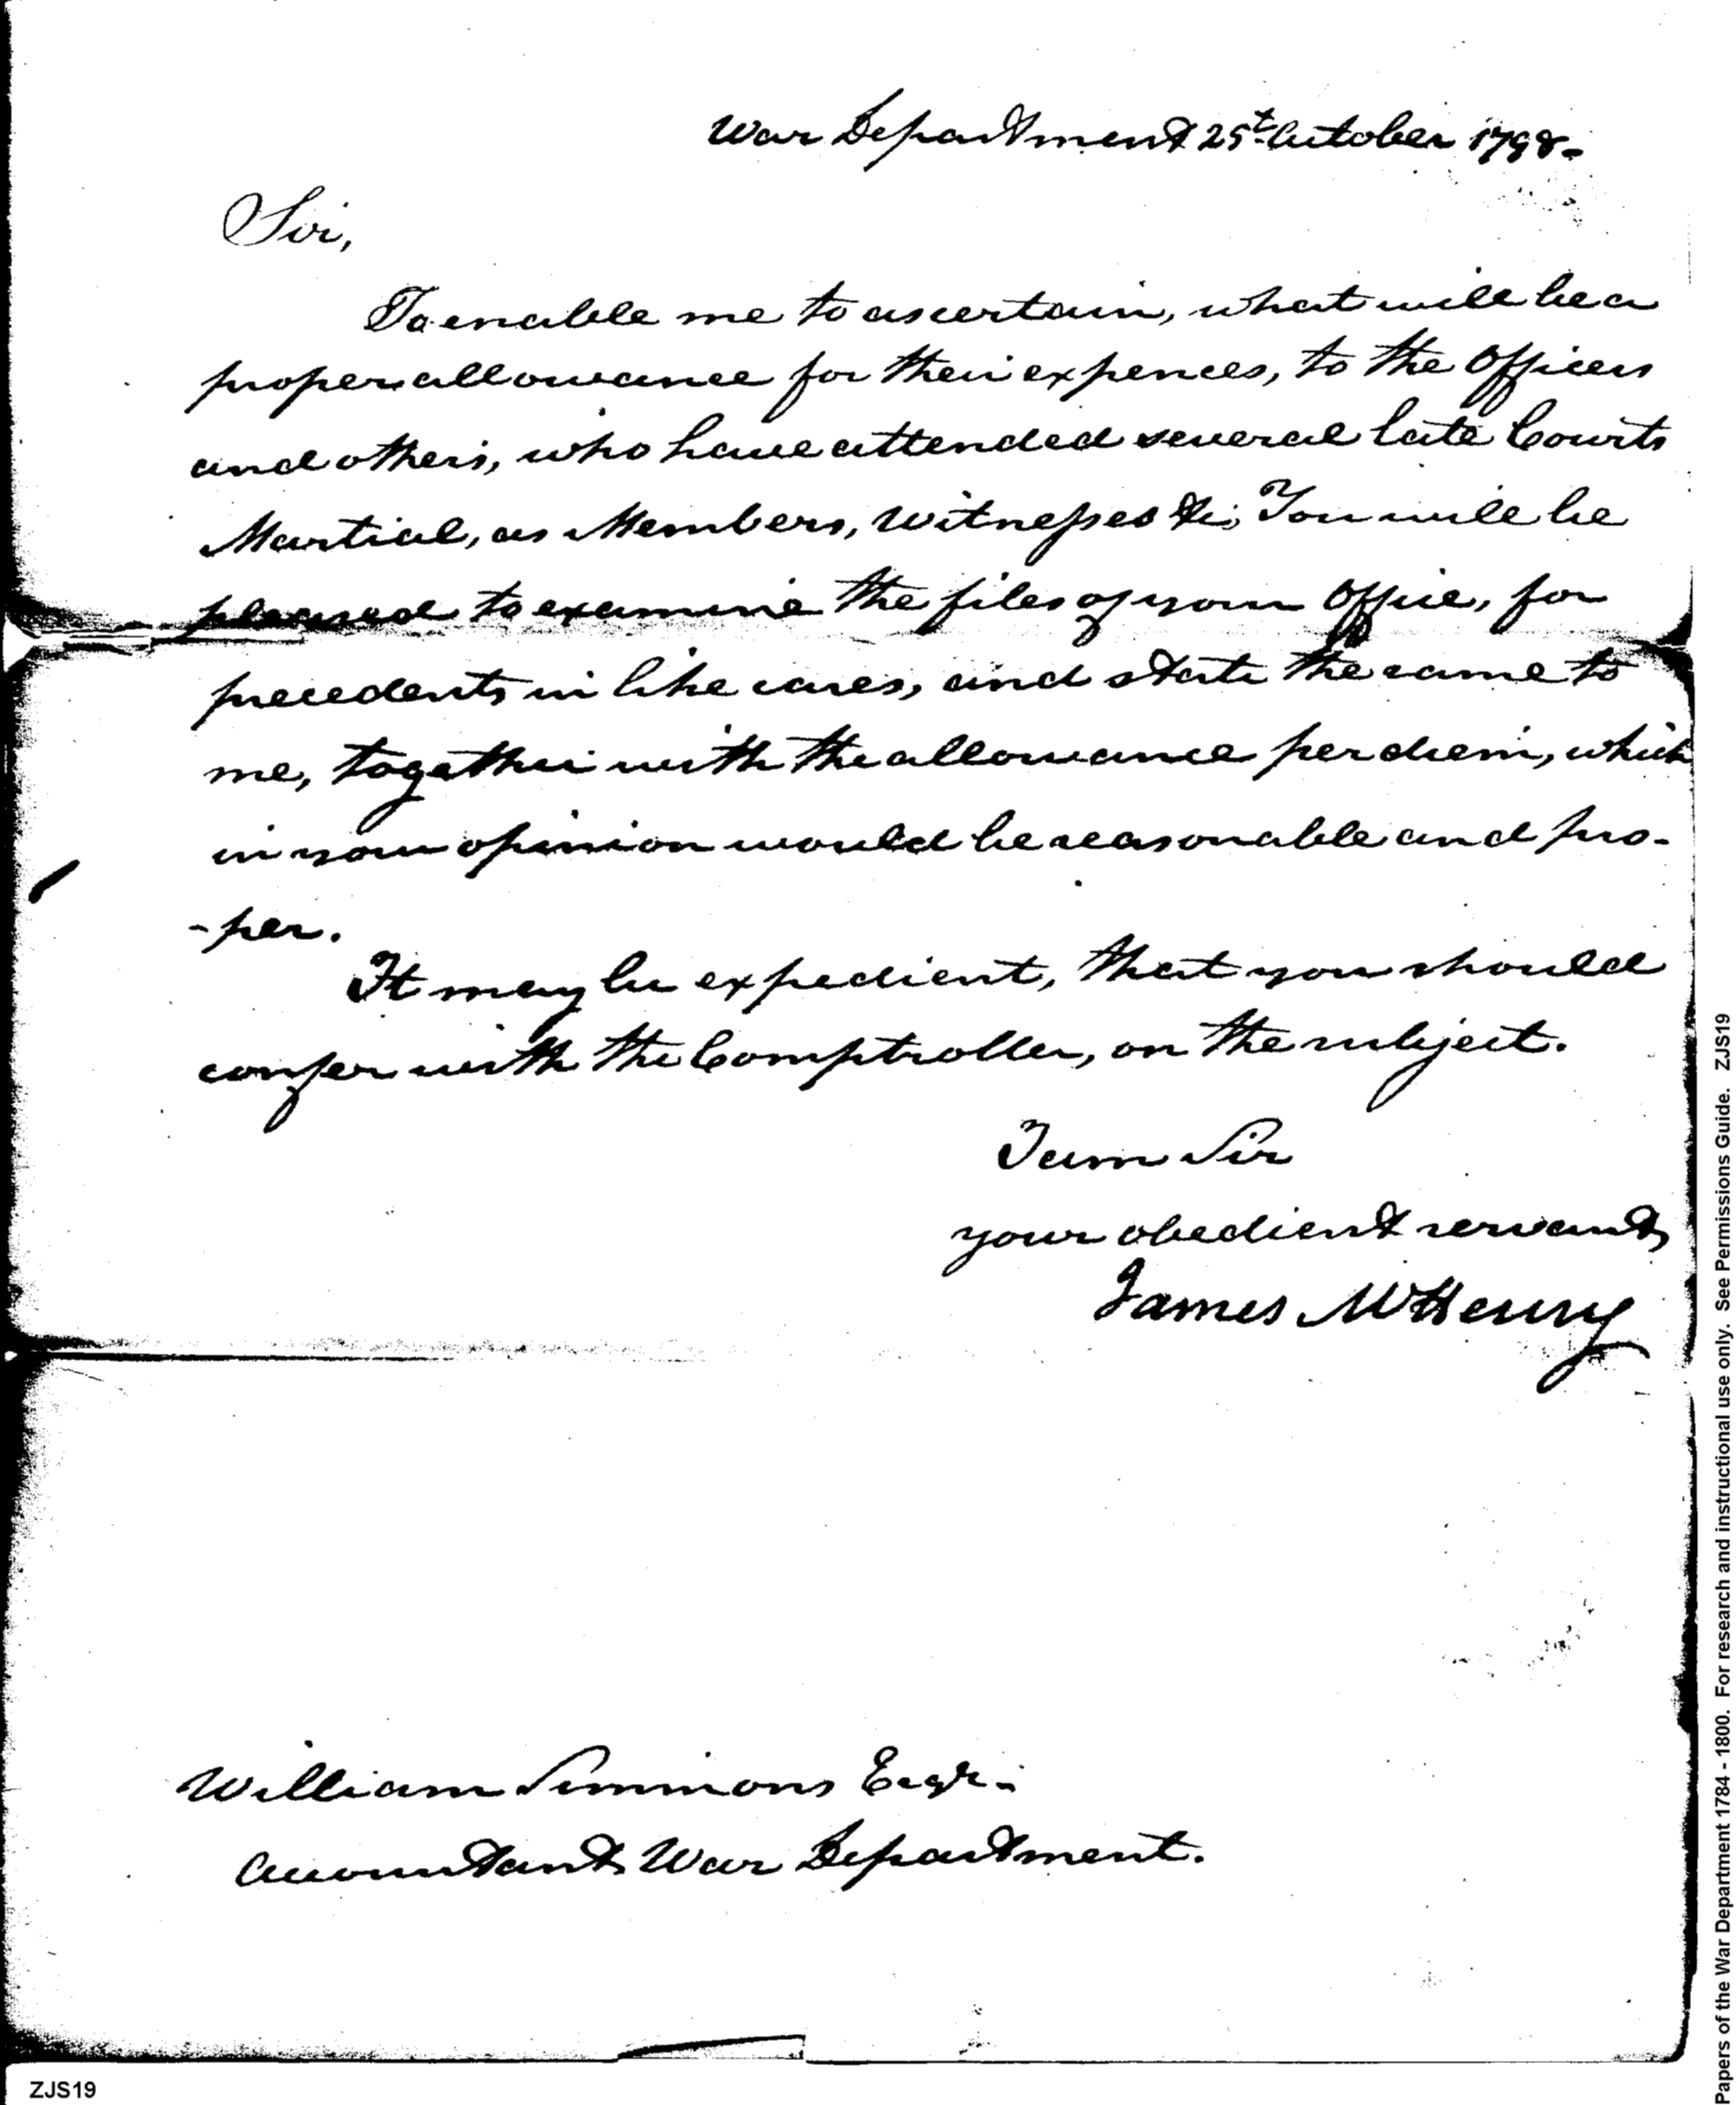 War Department 25t October 1798.
Sir,
To enable me to ascertain, what will be a
proper allowance for their expences, to the Officers
and others, who have attended several late Courts
Martial, as Members, Witnesses &c; You will be
pleased to examine the files of your Office, for
precedents in like cases, and state the same to
me, together with the allowance per diem, which
in your opinion would be reasonable and pro-
-per.
It may be expedient, that you should
confer with the Comptroller, on the subject.
I am Sir
your obedient servant,
James McHenry
William Simmons Esqr.
Accountant War Department.
ZJS19
Papers of the War Department 1784 - 1800. For research and instructional use only. See Permissions Guide. ZJS19